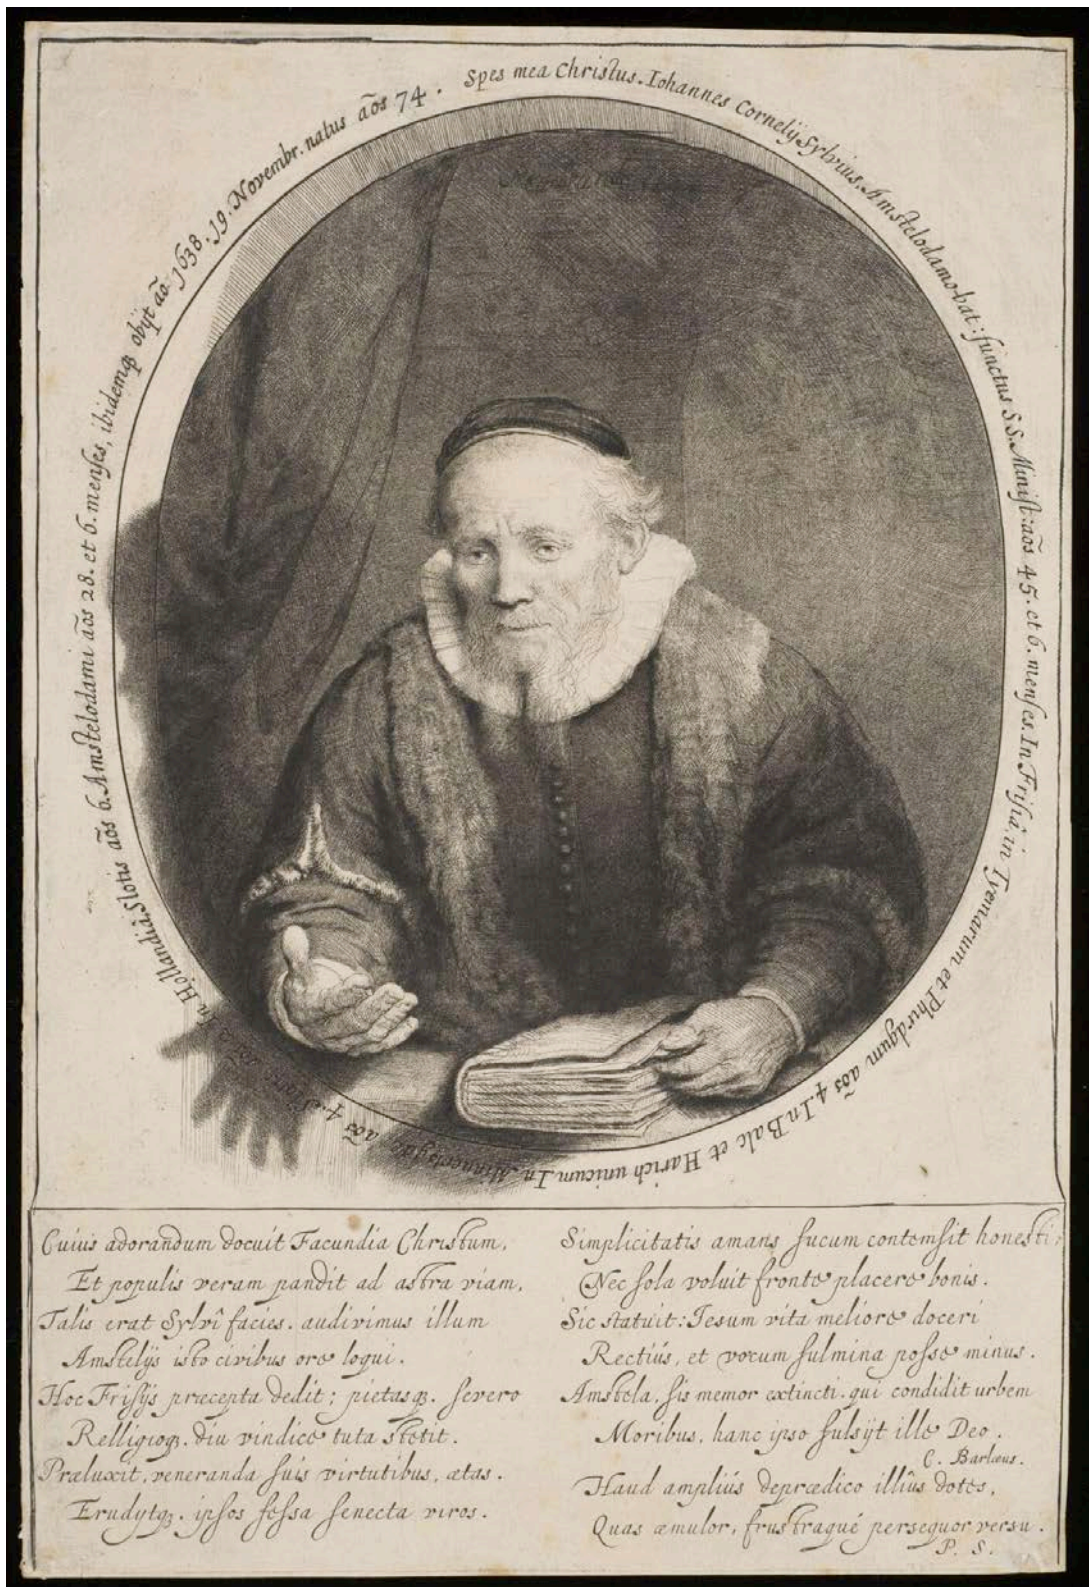 Spes mea Christus. Iohannes Cornelÿ Sylvius, Amstelodamo-bat: functus S.S. Minist: aõs 45. et 6. menses. In Frisiâ, in Tyemarum et Phirdgum aõs 4. In Balc et Harich unicum. In Minnertsgae aõs 4. In Hollandiâ, Slotis aõs 6. Amstelodami aõs 28. et 6. menses, ibidemqꝫ obÿt aõ. 1638. 19. Novembr. natus aõs 74.
Cuius adorandum docuit Facundia Christum,
Et populis veram pandit ad astra viam,
Talis erat Sylvî facies. audivimus illum
Amstelÿs isto civibus ore loqui.
Hoc Frisÿs præcepta dedit; pietasqꝫ. severo
Relligioqꝫ. diu vindice tuta stetit.
Præluxit, veneranda suis virtutibus, ætas.
Erudytqꝫ. ipsos fessa senecta viros.
Simplicitatis amans fucum contemsit honesti,
Nec sola voluit fronte placere bonis.
Sic statuit: Iesum vita meliore doceri
Rectiùs, et vocum fulmina posse minus.
Amstela, sis memor extincti. qui condidit urbem
Moribus, hanc ipso fulsÿt ille Deo.
C. Barlæus.
Haud ampliús deprædico illîus dotes,
Quas æmulor, frustraqué persequor versu.
P. S.